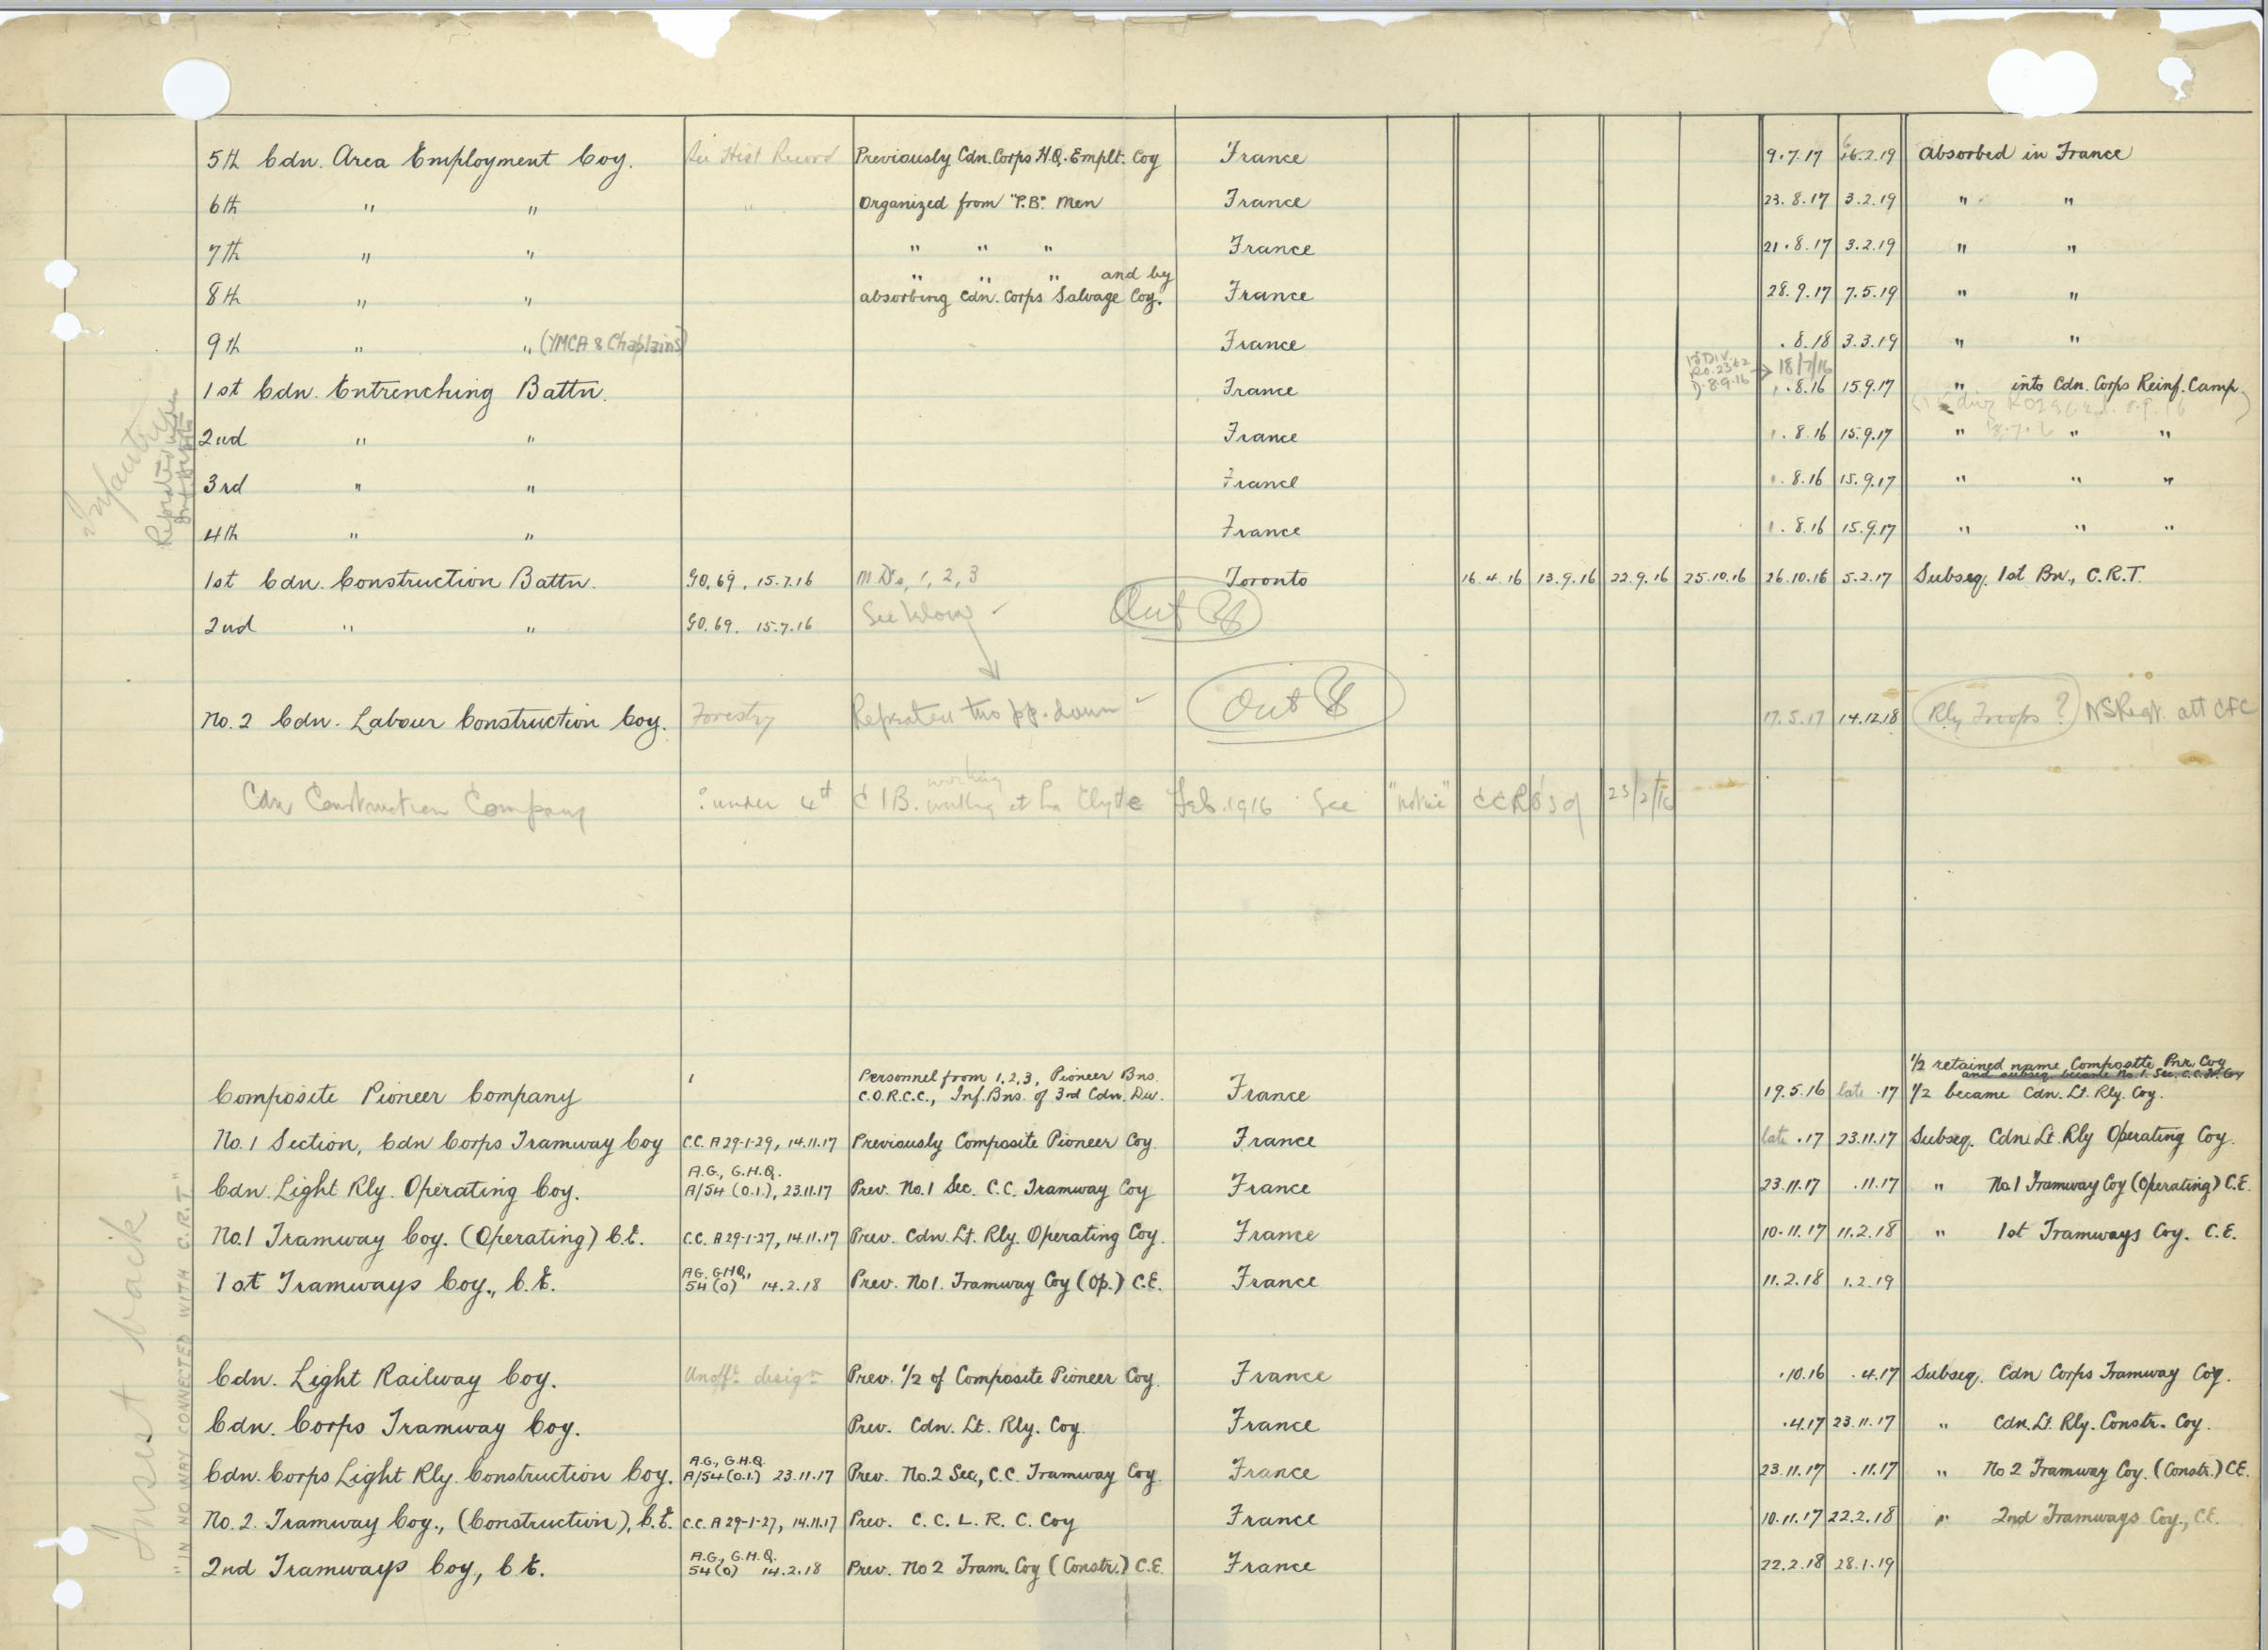 5th Cdn. Area Employment Coy. See Hist Record Previously Cdn. Corps H.Q. Emplt. Coy France 9.7.17 16.2.19 absorbed in France
6th " " " Organized from "P.B." Men France 23.8.17 3.2.19 " "
7th " " " " " France 21.8.17 3.2.19 " "
" " " and by
8th " " absorbing Cdn. Corps Salvage Coy. France 28.9.17 7.5.19 " "
9th " " (YMCA & Chaplains) France .8.18 3.3.19 " "
1st Div. 18/7/16
R.O. 2362
D. 8.9.16
1st Cdn. Entrenching Battn. France 1.8.16 15.9.17 " into Cdn. Corps Reinf. Camp.
2nd " " France 1.8.16 15.9.17 " " "
3rd " " France 1.8.16 15.9.17 " " "
4th " " France 1.8.16 15.9.17 " " "
Infantry
1st Cdn. Construction Battn. G.O. 69, 15.7.16 M.Ds, 1, 2, 3 Toronto 16.4.16 13.9.16 22.9.16 25.10.16 26.10.16 5.2.17 Subseq. 1st Bn., C.R.T.
2nd " " G.O. 69. 15.7.16 See below Out
No. 2 Cdn. Labour Construction Coy. Forestry Repeated two pp. down Out 17.5.17 14.12.18 Rly Troops? NS Regt att CFC
working
Cdn Construction Company : under 4th C I B. working at La Clytte Feb. 1916 See "notice" CCRO 23/2/16
1/2 retained name Composite Pnr. Coy
and subseq. became No. 1. Sec. C.C. Tr. Coy
Personnel from 1, 2, 3, Pioneer Bns.
Composite Pioneer Company C.O.R.C.C., Inf. Bns. of 3rd Cdn. Div. France 19.5.16 late .17 1/2 became Cdn. Lt. Rly. Coy.
No. 1 Section, Cdn Corps Tramway Coy C.C. A 29-1-29, 14.11.17 Previously Composite Pioneer Coy France late .17 23.11.17 Subseq. Cdn Lt. Rly Operating Coy.
A.G., G.H.Q.
Cdn. Light Rly. Operating Coy. A/54 (O.1.), 23.11.17 Prev. No. 1 Sec. C.C. Tramway Coy France 23.11.17 .11.17 " No 1 Tramway Coy (Operating) C.E.
No. 1 Tramway Coy. (Operating) C.E. C.C. A 29-1-27, 14.11.17 Prev. Cdn. Lt. Rly. Operating Coy. France 10.11.17 11.2.18 " 1st Tramways Coy. C.E.
A.G. G.H.Q.,
1st Tramways Coy., C.E. 54 (O) 14.2.18 Prev. No 1. Tramway Coy (Op.) C.E. France 11.2.18 1.2.19
Cdn. Light Railway Coy. Unoffl. design Prev. 1/2 of Composite Pioneer Coy. France .10.16 .4.17 Subseq. Cdn Corps Tramway Coy.
Cdn. Corps Tramway Coy. Prev. Cdn. Lt. Rly. Coy. France .4.17 23.11.17 " Cdn. Lt. Rly. Constr. Coy.
A.G., G.H.Q.
Cdn. Corps Light Rly. Construction Coy. A/54 (O.1.) 23.11.17 Prev. No. 2 Sec., C.C. Tramway Coy. France 23.11.17 .11.17 " No 2 Tramway Coy. (Constr.) C.E.
No. 2. Tramway Coy., (Construction), C.E. C.C. A 29-1-27, 14.11.17 Prev. C. C. L. R. C. Coy France 10.11.17 22.2.18 " 2nd Tramways Coy., C.E.
A.G., G.H.Q.
2nd Tramways Coy, C.E. 54 (O) 14.2.18 Prev. No 2 Tram. Coy (Constr.) C.E. France 22.2.18 28.1.19
Insert back
"IN NO WAY CONNECTED WITH C.R.T."